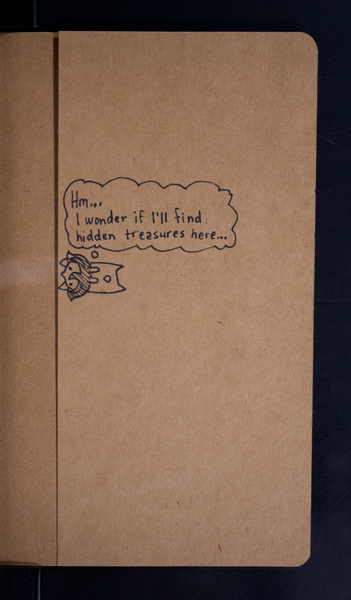 Hm...
I wonder if I'll find
hidden treasures here...